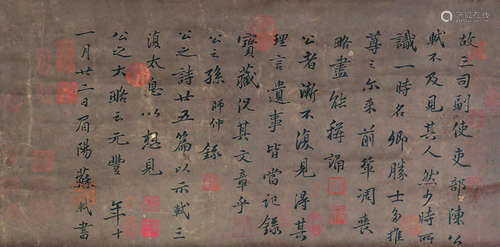 故三司副使吏部陳公
軾不及見其人然少時所
識一時名卿勝士多推
尊之尔來前輩凋喪
略盡能稱誦
公者漸不復見得其
理言遺事皆當記錄
寶藏況其文章乎
公之孫師仲錄
公之詩廿五篇以示軾三
復太息以想見
公之大略云元豐 年十
一月廿二日眉陽蘇軾書